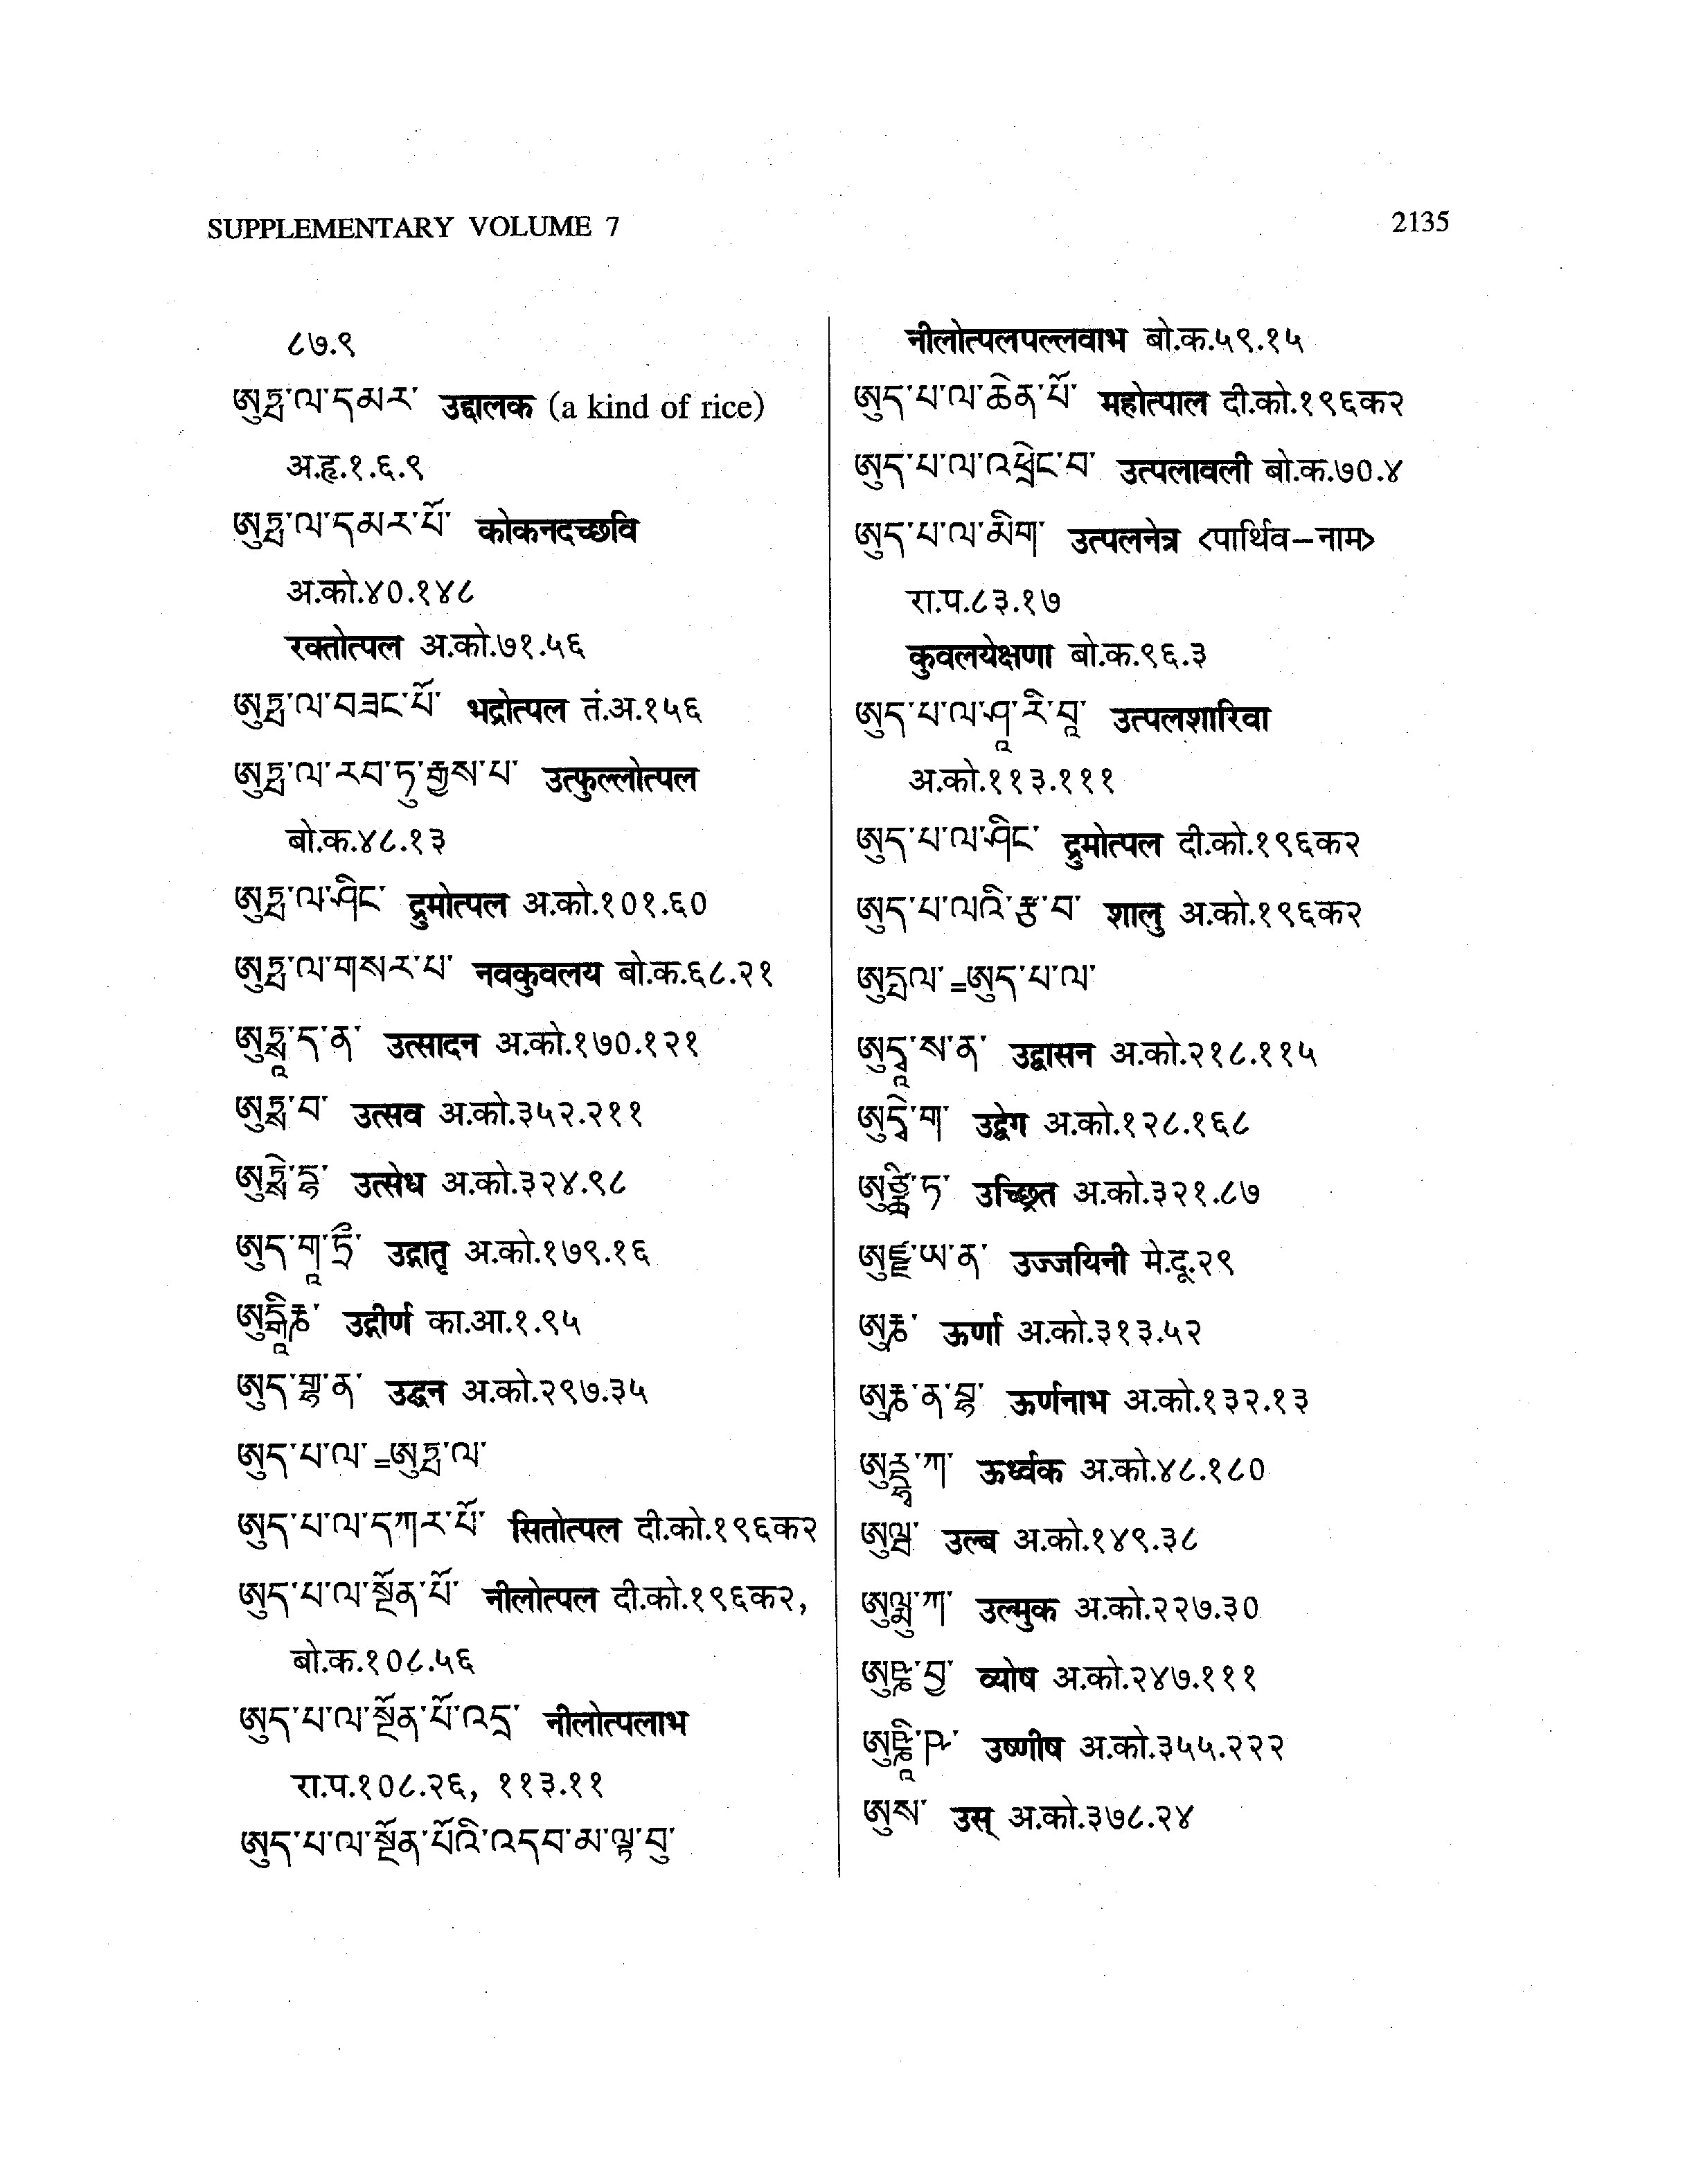 SUPPLEMENTARY VOLUME 7
2135
८७.९
ཨུཏྤ་ལ་དམར་ उद्दालक (a kind of rice)
अ.हृ.१.६.९
ཨུཏྤ་ལ་དམར་པོ་ कोकनदच्छवि
अ.को.४०.१४८
रक्तोत्पल अ.को.७१.५६
ཨུཏྤ་ལ་བཟང་པོ་ भद्रोत्पल तं.अ.१५६
ཨུཏྤ་ལ་རབ་ཏུ་རྒྱས་པ་ उत्फुल्लोत्पल
बो.क.४८.१३
ཨུཏྤ་ལ་ཤིང་ द्रुमोत्पल अ.को.१०१.६०
ཨུཏྤ་ལ་གསར་པ་ नवकुवलय बो.क.६८.२१
ཨུཏྶཱ་ད་ན་ उत्सादन अ.को.१७०.१२१
ཨུཏྶ་བ་ उत्सव अ.को.३५२.२११
ཨུཏྶེ་དྷ་ उत्सेध अ.को.३२४.९८
ཨུད་གཱ་ཏྲྀ་ उद्गातृ अ.को.१७९.१६
ཨུདྒཱིརྞ་ उद्गीर्ण का.आ.१.९५
ཨུད་གྷ་ན་ उद्घन अ.को.२९७.३५
ཨུད་པ་ལ་=ཨུཏྤ་ལ་
ཨུད་པ་ལ་དཀར་པོ་ सितोत्पल दी.को.१९६क२
ཨུད་པ་ལ་སྔོན་པོ་ नीलोत्पल दी.को.१९६क२,
बो.क.१०८.५६
ཨུད་པ་ལ་སྔོན་པོ་འདྲ་ नीलोत्पलाभ
रा.प.१०८.२६, ११३.११
ཨུད་པ་ལ་སྔོན་པོའི་འདབ་མ་ལྟ་བུ་
नीलोत्पलपल्लवाभ बो.क.५९.१५
ཨུད་པ་ལ་ཆེན་པོ་ महोत्पाल दी.को.१९६क२
ཨུད་པ་ལ་འཕྲེང་བ་ उत्पलावली बो.क.७०.४
ཨུད་པ་ལ་མིག་ उत्पलनेत्र <पार्थिव–नाम>
रा.प.८३.१७
कुवलयेक्षणा बो.क.९६.३
ཨུད་པ་ལ་ཤཱ་རི་བཱ་ उत्पलशारिवा
अ.को.११३.१११
ཨུད་པ་ལ་ཤིང་ द्रुमोत्पल दी.को.१९६क२
ཨུད་པ་ལའི་རྩ་བ་ शालु अ.को.१९६क२
ཨུདྤལ་=ཨུད་པ་ལ་
ཨུདྭཱ་ས་ན་ उद्वासन अ.को.२१८.११५
ཨུདྭེ་ག་ उद्वेग अ.को.१२८.१६८
उच्छ्रित अ.को.३२१.८७
ཨུཛྫ་ཡ་ན་ उज्जयिनी मे.दू.२९
ཨུརྞ་ ऊर्णा अ.को.३१३.५२
ཨུརྞ་ན་བྷ་ ऊर्णनाभ अ.को.१३२.१३
ཨུརྡྷྭ་ཀ་ ऊर्ध्वक अ.को.४८.१८०
ཨུལྦ་ उल्ब अ.को.१४९.३८
ཨུལྨུ་ཀ་ उल्मुक अ.को.२२७.३०
व्योष अ.को.२४७.१११
ཨུཥྞཱི་ཥ་ उष्णीष अ.को.३५५.२२२
ཨུས་ उस् अ.को.३७८.२४